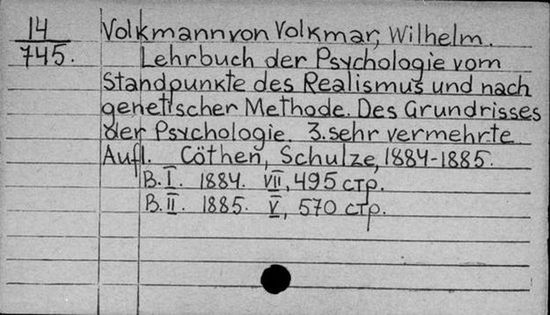 14
745.
Volkmann von Volkmar, Wilhelm.
Lehrbuch der Psychologie vom
Standpunkte des Realismus und nach
genetischer Methode. Des Grundrisses
der Psychologie. 3. sehr vermehrte
Aufl. Cöthen, Schulze, 1884-1885.
B. I. 1884. VII, 495 стр.
B. II. 1885. V, 570 стр.